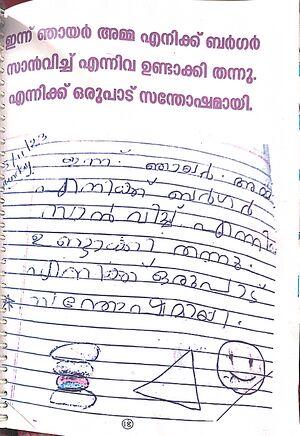 ഇന്ന് ഞായർ അമ്മ എനിക്ക് ബർഗർ
സാൻവിച്ച് എന്നിവ ഉണ്ടാക്കി തന്നു.
എന്നിക്ക് ഒരുപാട് സന്തോഷമായി.
5/11/23
ഇന്ന് ഞായർ അമ്മ
എനിക്ക് ബർഗർ
സാൻ വിച്ച് എന്നിവ
ഉണ്ടാക്കി തന്നു.
എന്നിക്ക് ഒരുപാട്
സന്തോഷമായി.
18